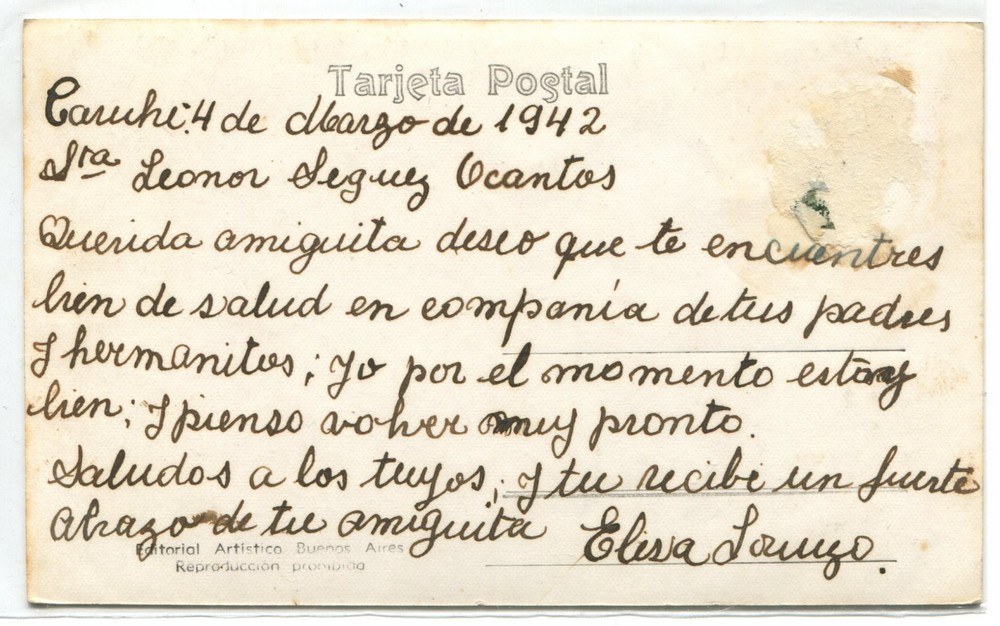 Tarjeta Postal
Caruhi. 4 de Marzo de 1942
Sta Leonor Seguez Ocantos
Querida amiguita deseo que te encuentres
bien de salud en compania de tus padres
y hermanitos; yo por el momento estoy
bien; y pienso volver muy pronto.
Saludos a los tuyos; y tu recibe un fuerte
abrazo de tu amiguita Elisa Lorenzo.
Editorial Artistico Buenos Aires
Reproducción prohibida